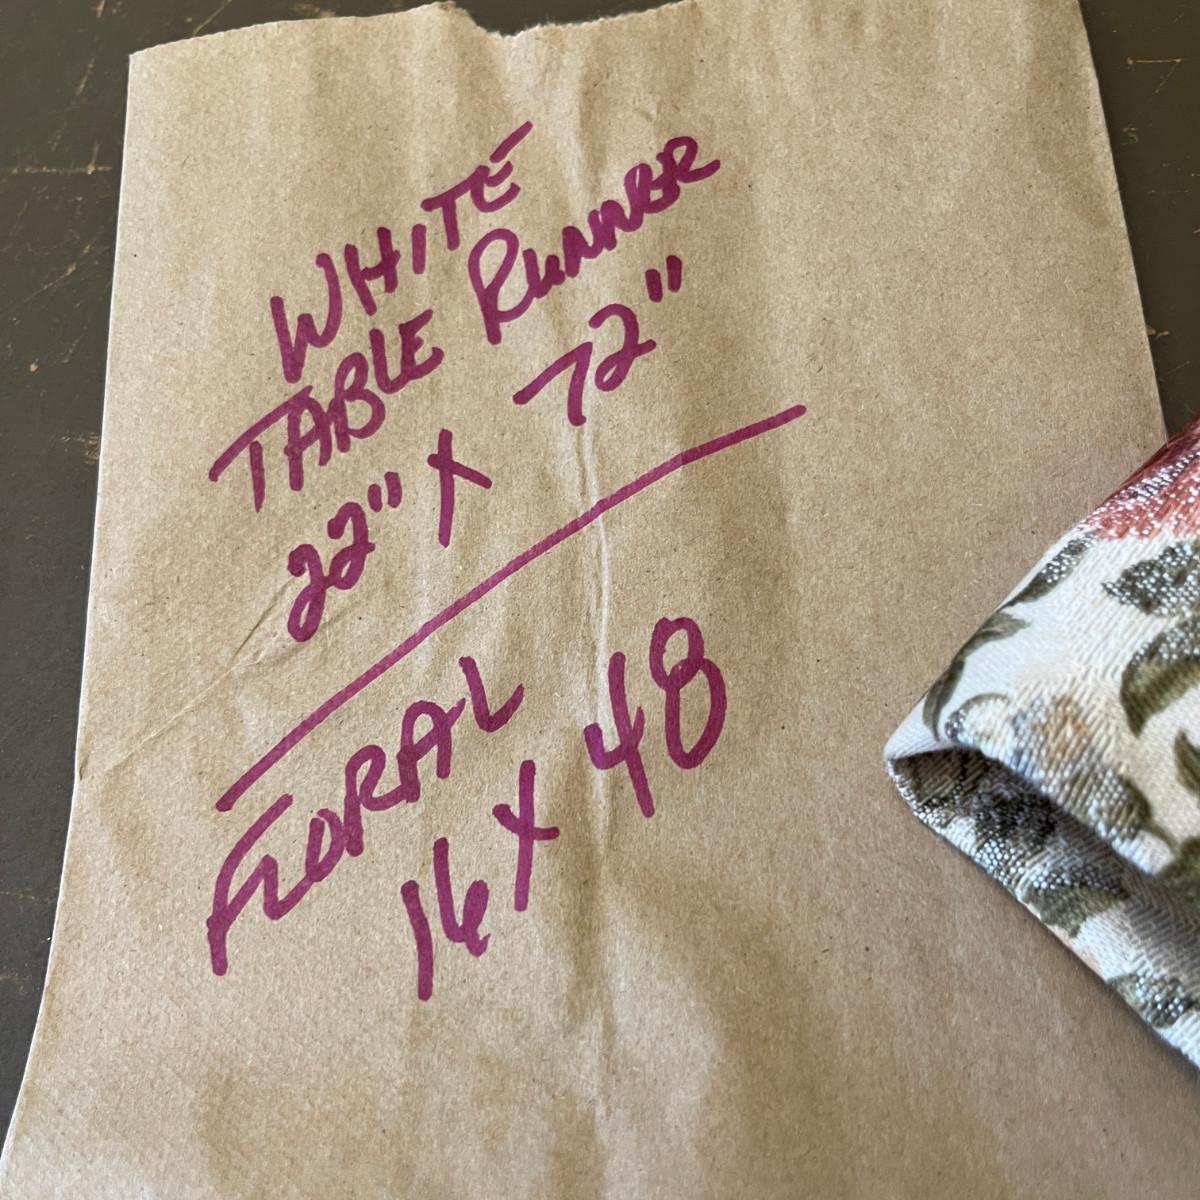 WHITE
TABLE RUNNER
22" X 72"
FLORAL
16 X 48